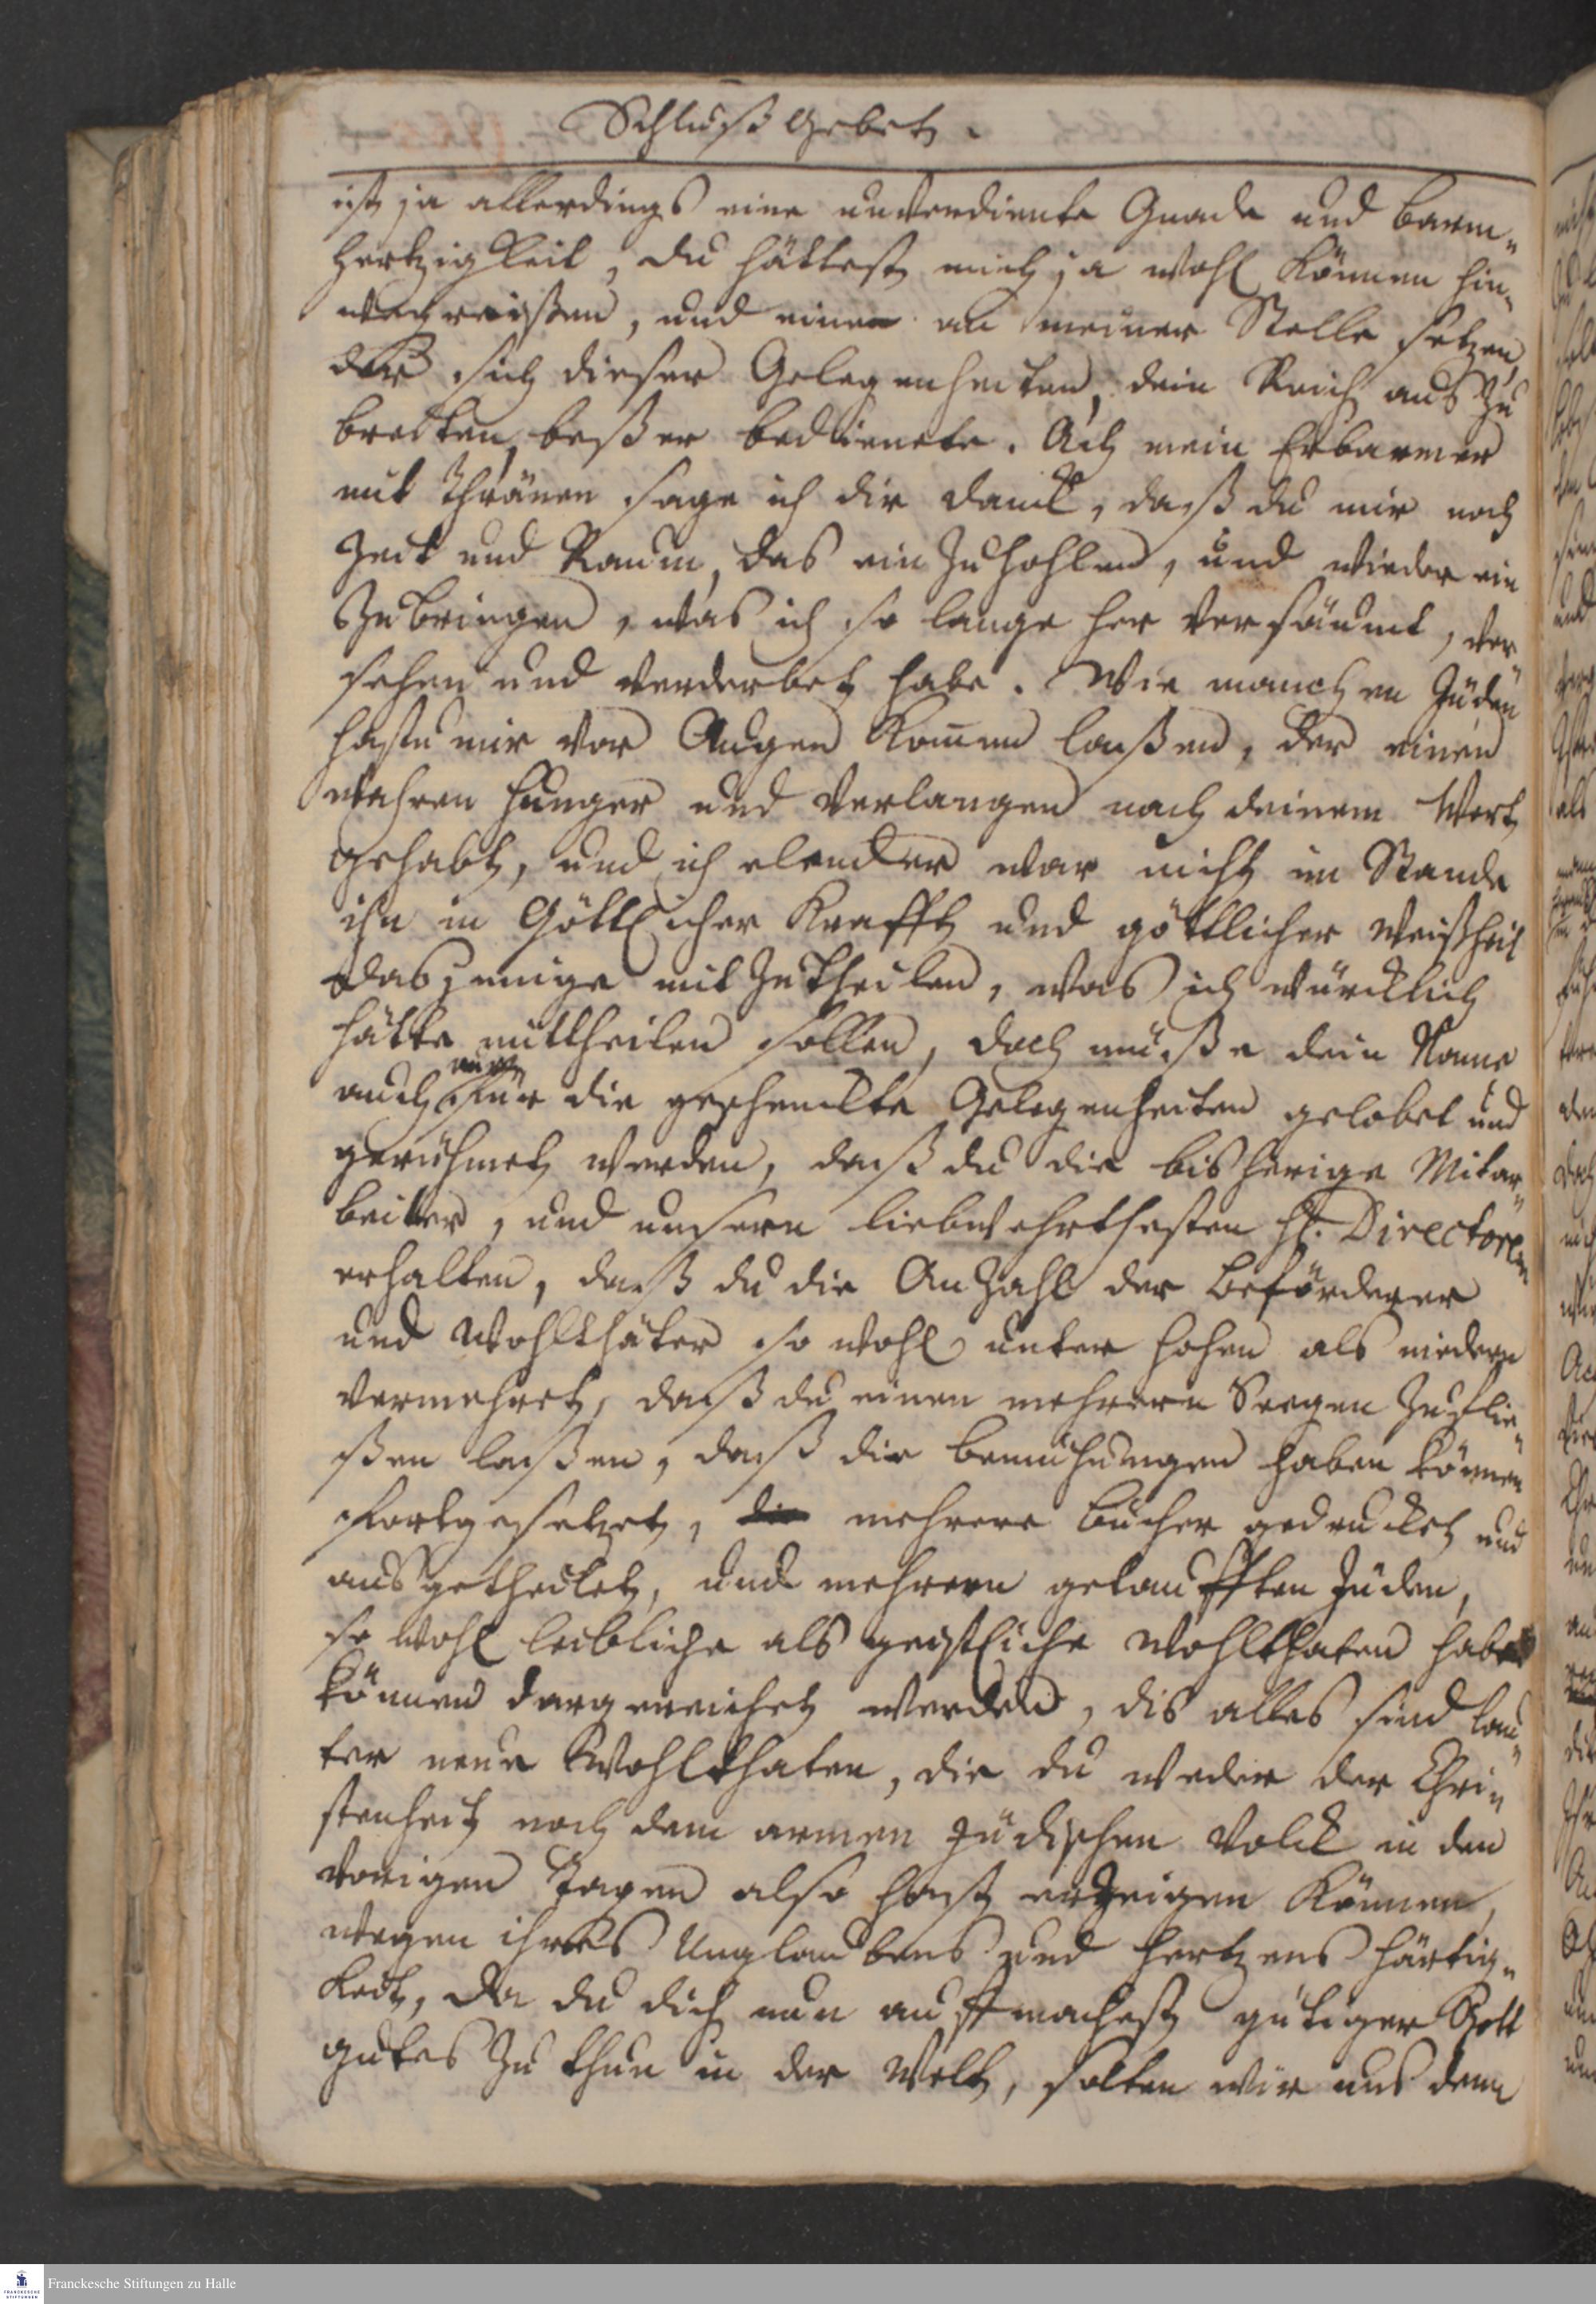 Schluß Gebet.
ist ja allerdings eine unverdiente Gnade und barm-
hertzigkeit, du hättest mich ja wohl können hin-
wegreißen, und einen an meiner Stelle setzen,
der sich dieser Gelegenheiten, dein Reich aus zu
breiten, beßer bedienete. Ach mein Erbarmer
mit Thränen sage ich dir danck, daß du mir noch
Zeit und Raum, das ein zuhohlen, und wieder ein
zubringen, was ich so lange her versäumt, ver
sehen und verderbet habe. Wie manchen Jüden
hastu mir vor Augen kom̄en laßen, der einen
wahren hunger und verlangen nach deinem Wort
gehabt, und ich elender war nicht im Stande
ihn in Göttlicher Krafft und göttlicher Weißheit
dasjenige mit zutheilen, was ich würcklich
hätte mittheilen sollen, doch müße dein Name
auch nur
für die geschenckte Gelegenheiten gelobet und
gerühmet werden, daß du die bisherige Mitar-
beiter, und unsern liebwehrthesten H. Directorem
erhalten, daß du die Anzahl der beförderer
und Wohlthäter so wohl unter hohen als niedern
vermehret, daß du einen mehrern Seegen zuflie-
ßen laßen, daß die bemühungen haben können
fortgesetzet, die mehrere bücher gedrucket und
ausgetheilet, und mehrern getaufften Jüden,
so wohl leibliche als geistliche Wohlthaten haben
können dargereichet werden, dis alles sind lau-
ter neue Wohlthaten, die du weder der Chri-
stenheit noch dem armen Jüdischen Volck in den
vorigen Tagen also hast erzeigen können,
wegen ihres Unglaubens und hertzens härtig-
keit, Da du dich nun auffmachest gütiger Gott
gutes zu thun in der Welt, solten wir uns denn
Franckesche Stiftungen zu Halle